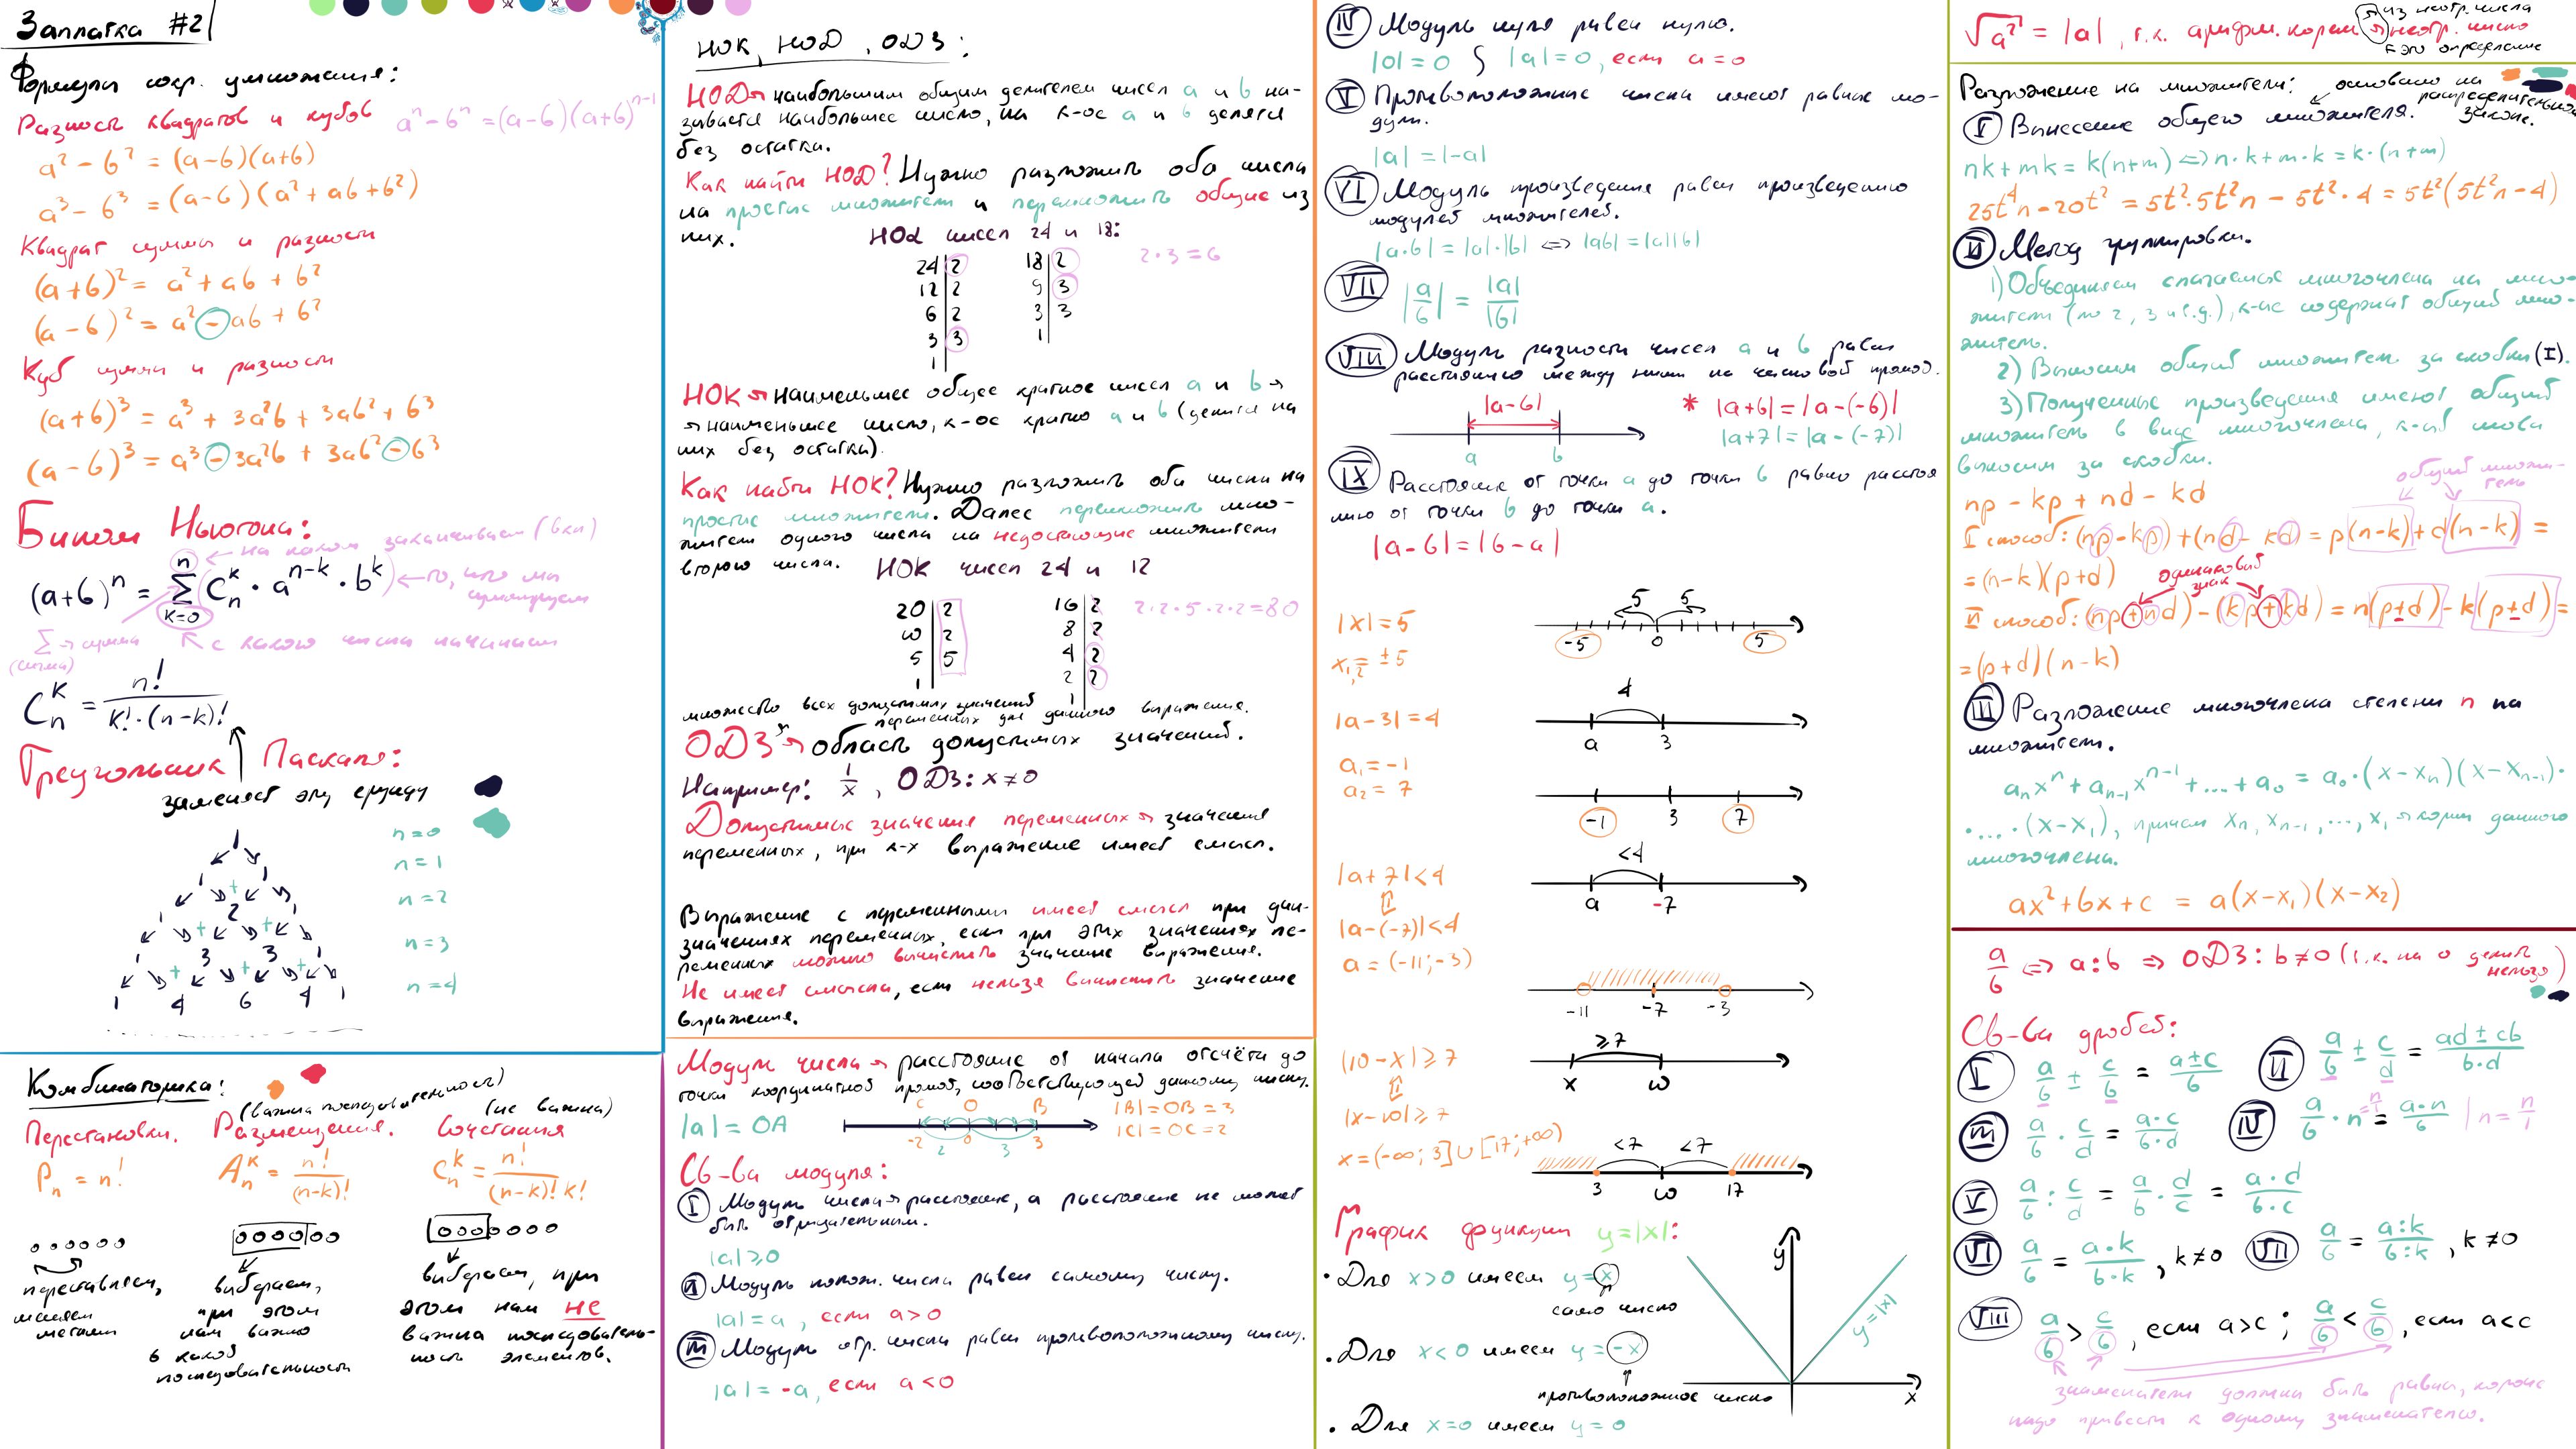 Заплатка #2
Формулы сокр. умножения:
Разность квадратов и кубов
aⁿ - bⁿ = (a-b)(a+b)ⁿ⁻¹
a² - b² = (a-b)(a+b)
a³ - b³ = (a-b)(a² + ab + b²)
Квадрат суммы и разности
(a+b)² = a² + ab + b²
(a-b)² = a² - ab + b²
Куб суммы и разности
(a+b)³ = a³ + 3a²b + 3ab² + b³
(a-b)³ = a³ - 3a²b + 3ab² - b³
Бином Ньютона:
n ← на каком заканчиваем (вкл)
(a+b)ⁿ = Σ (Cₙᵏ · aⁿ⁻ᵏ · bᵏ) ← то, что мы суммируем
k=0
Σ → сумма ↖ с какого числа начинаем
(сигма)
Cₙᵏ = n! / (k! · (n-k)!)
Треугольник Паскаля:
заменяет эту ерунду
n=0
n=1
n=2
2
n=3
3 3
n=4
1 4 6 4 1
Комбинаторика:
(важна последовательность) (не важна)
Перестановки. Размещения. Сочетания
Pₙ = n!
Aₙᵏ = n! / (n-k)!
Cₙᵏ = n! / ((n-k)! k!)
переставляем,
меняем
местами
выбираем,
при этом
нам важно
в какой
последовательности
выбираем, при
этом нам не
важна последователь-
ность элементов.
НОК, НОД, ОДЗ:
НОД → наибольшим общим делителем чисел a и b на-
зывается наибольшее число, на к-ое a и b делятся
без остатка.
Как найти НОД? Нужно разложить оба числа
на простые множители и перемножить общие из
них.
НОД чисел 24 и 18:
24 | 2 18 | 2 2·3=6
12 | 2 9 | 3
6 | 2 3 | 3
3 | 3 1
1
НОК → наименьшее общее кратное чисел a и b →
→ наименьшее число, к-ое кратно a и b (делится на
них без остатка).
Как найти НОК? Нужно разложить оба числа на
простые множители. Далее перемножить мно-
жители одного числа на недостающие множители
второго числа. НОК чисел 24 и 12
20 | 2 16 | 2 2·2·5·2·2=80
10 | 2 8 | 2
5 | 5 4 | 2
1 2 | 2
1
множество всех допустимых значений
переменных для данного выражения.
ОДЗ → область допустимых значений.
Например: 1/x, ОДЗ: x ≠ 0
Допустимые значения переменных → значения
переменных, при к-х выражение имеет смысл.
Выражение с переменными имеет смысл при дан-
значениях переменных, если при этих значениях пе-
ременных можно вычислить значение выражения.
Не имеет смысла, если нельзя вычислить значение
выражения.
Модуль числа → расстояние от начала отсчёта до
точки координатной прямой, соответствующей данному числу.
|a| = OA
C O B
-2 0 3
2 3
|B| = OB = 3
|C| = OC = 2
Св-ва модуля:
I Модуль числа → расстояние, а расстояние не может
быть отрицательным.
|a| ≥ 0
II Модуль полож. числа равен самому числу.
|a| = a, если a > 0
III Модуль отр. числа равен противоположному числу.
|a| = -a, если a < 0
IV Модуль нуля равен нулю.
|0| = 0 } |a| = 0, если a = 0
V Противоположные числа имеют равные мо-
дули.
|a| = |-a|
VI Модуль произведения равен произведению
модулей множителей.
|a·b| = |a|·|b| ⇔ |ab| = |a||b|
VII |a/b| = |a|/|b|
VIII Модуль разности чисел a и b равен
расстоянию между ними на числовой прямой.
|a-b|
a b
* |a+b| = |a-(-b)|
|a+7| = |a-(-7)|
IX Расстояние от точки a до точки b равно расстоя
нию от точки b до точки a.
|a-b| = |b-a|
|x| = 5
x₁,₂ = ±5
5 5
-5 0 5
|a-3| = 4
4
a 3
a₁ = -1
a₂ = 7
-1 3 7
|a+7| < 4
<4
a -7
|a-(-7)| < 4
a = (-11; -3)
-11 -7 -3
|10-x| ≥ 7
≥7
x 10
|x-10| ≥ 7
x = (-∞; 3] ∪ [17; +∞)
<7 <7
3 10 17
График функции y=|x|:
• Для x>0 имеем y=x
само число
• Для x<0 имеем y=-x
противоположное число
• Для x=0 имеем y=0
y
y=|x|
x
√a² = |a|, т.к. арифм. корень → неотр. число
→ из неотр. числа
← это определение
Разложение на множители:
основано на
распределительном
законе.
I Вынесение общего множителя.
nk+mk = k(n+m) ⇔ n·k+m·k = k·(n+m)
25t⁴n - 20t² = 5t²·5t²n - 5t²·4 = 5t²(5t²n-4)
II Метод группировки.
1) Объединяем слагаемые многочлена на мно-
жители (по 2, 3 и т.д.), к-ые содержат общий мно-
житель.
2) Выносим общий множитель за скобки (I).
3) Полученные произведения имеют общий
множитель в виде многочлена, к-ый снова
выносим за скобки.
общий множи-
тель
np - kp + nd - kd
I способ: (np-kp)+(nd-kd) = p(n-k)+d(n-k) =
= (n-k)(p+d)
одинаковый
знак
II способ: (np+nd)-(kp+kd) = n(p+d)-k(p+d) =
= (p+d)(n-k)
III Разложение многочлена степени n на
множители.
aₙxⁿ + aₙ₋₁xⁿ⁻¹ + ... + a₀ = a₀·(x-xₙ)(x-xₙ₋₁)·
·...·(x-x₁), причём xₙ, xₙ₋₁, ..., x₁ → корни данного
многочлена.
ax²+bx+c = a(x-x₁)(x-x₂)
a/b ⇔ a:b ⇒ ОДЗ: b≠0 (т.к. на 0 делить
нельзя)
Св-ва дробей:
I a/b ± c/b = (a±c)/b
II a/b ± c/d = (ad±cb)/(b·d)
III a/b · c/d = (a·c)/(b·d)
IV a/b · n = (a·n)/b | n = n/1
V a/b : c/d = a/b · d/c = (a·d)/(b·c)
VI a/b = (a·k)/(b·k), k≠0
VII a/b = (a:k)/(b:k), k≠0
VIII a/b > c/b, если a>c; a/b < c/b, если a<c
знаменатели должны быть равны, короче
надо привести к одному знаменателю.